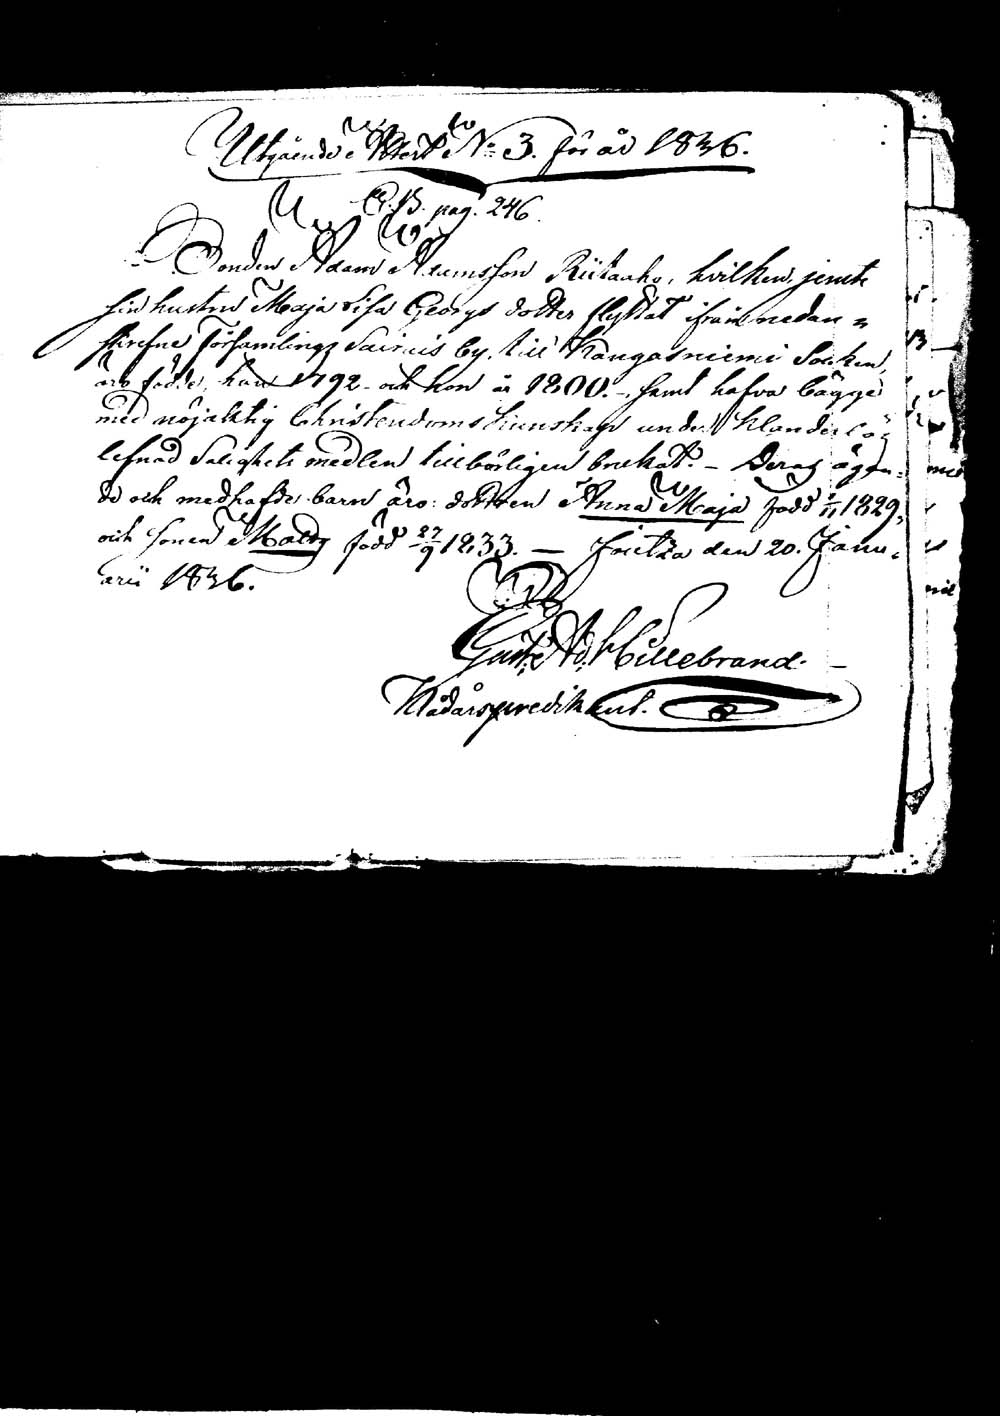 Utgående Attest No 3. för år 1836.
C. B. pag. 246.
Bonden Adam Adamsson Riitaaho, hvilken jemte
sin hustru Maja Lisa Georgs dotter flyttat ifrån nedan=
skrefne Församlings Sairais by, till Kangasniemi Socken,
äro födde, han 1792 och hon år 1800. Samt hafva bägge
med nöjaktig Christendoms kunskap under klanderlös
lefnad Salighets medlen tillbörligen brukat. – Deras ägan=
de och medhafde barn äro: dottren Anna Maja född 1829,
och Sonen Matts född 27/9 1833. — Jäitza den 20. Janu=
arii 1836.
Gust. Ad. Hillebrand.
Nådårspredikant.